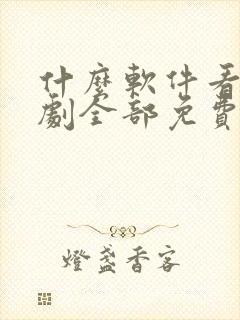 什麼軟件看
劇全部免費
燈盞香客